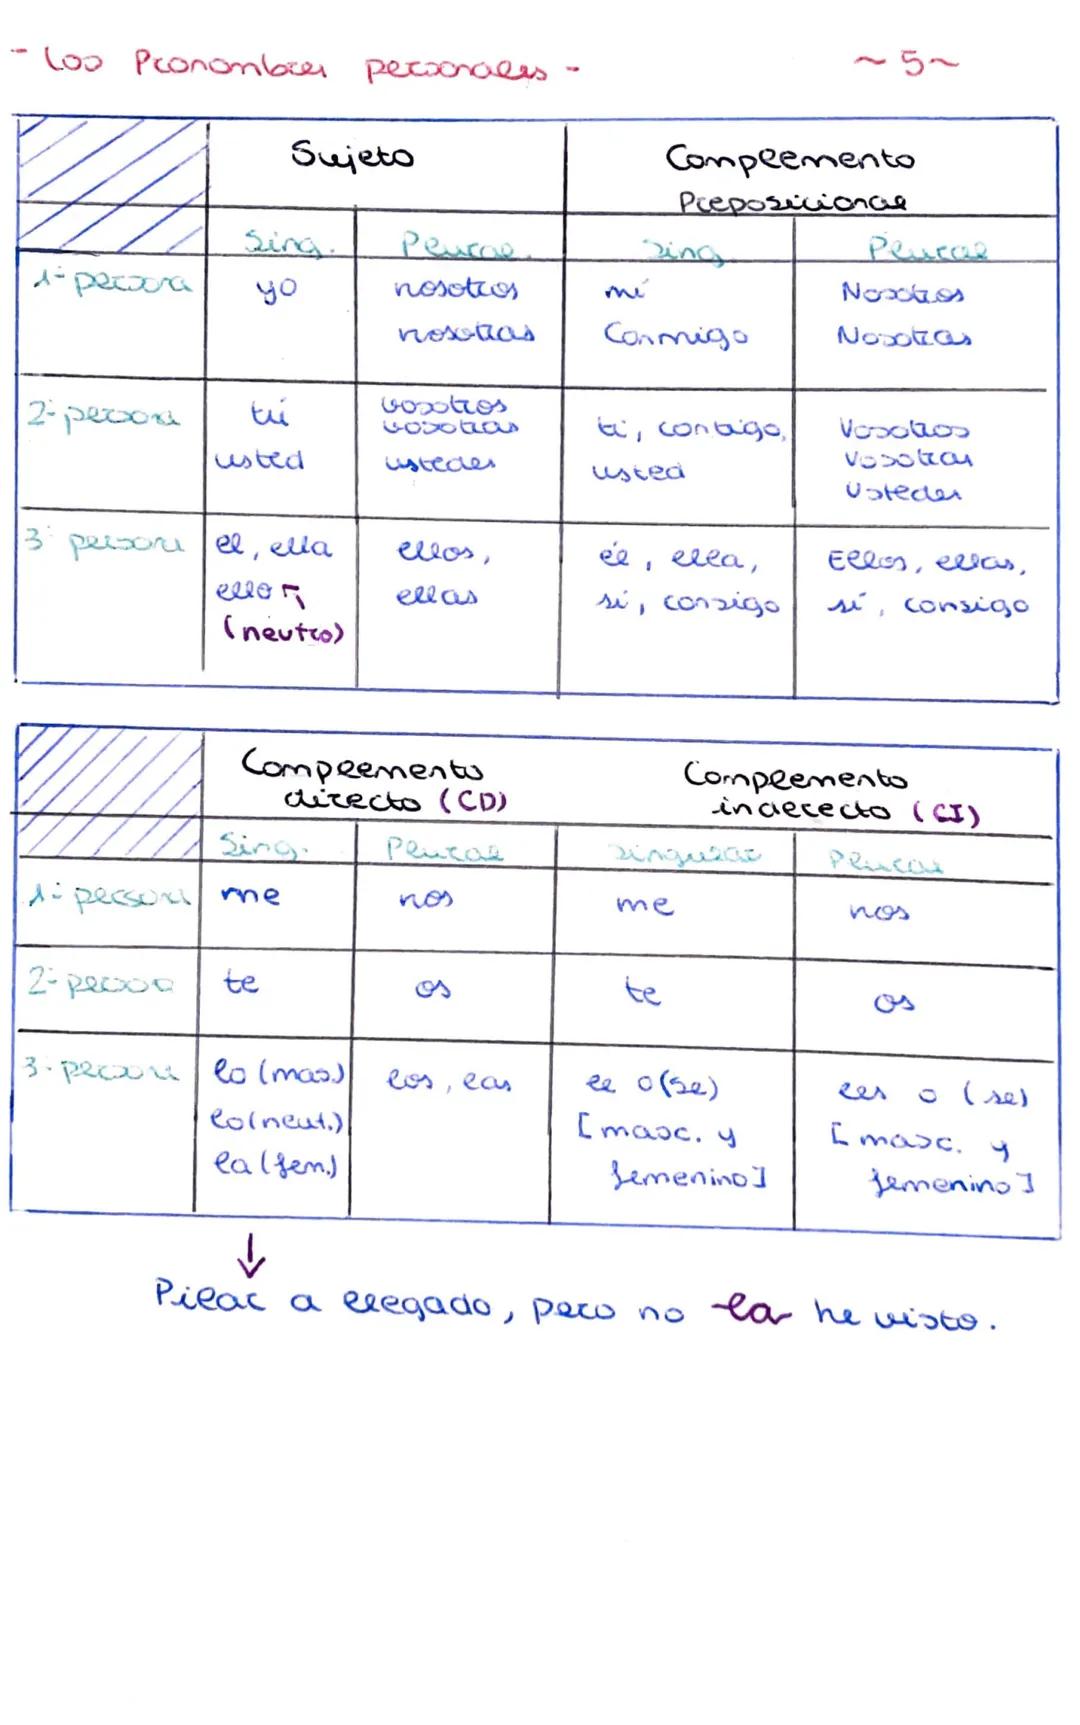 - Los Pronombres personales -
~ 5 ~
Sujeto
Complemento
Preposicional
Sing. Plural. Sing Plural
1ª persona yo nosotros mí Nosotros
nosotras Conmigo Nosotras
2ª persona tú vosotros ti, contigo, Vosotros
vosotras Vosotras
usted ustedes usted Ustedes
3ª persona el, ella ellos, él, ella, Ellos, ellas,
ello ellas sí, consigo sí, consigo
(neutro)
Complemento Complemento
directo (CD) indirecto (CI)
Sing. Plural Singular Plural
1ª persona me nos me nos
2ª persona te os te os
3ª persona lo (mas.) los, las le o (se) les o (se)
lo (neut.) [masc. y [masc. y
la (fem.) femenino] femenino]
↓
Pilar a llegado, pero no la he visto.